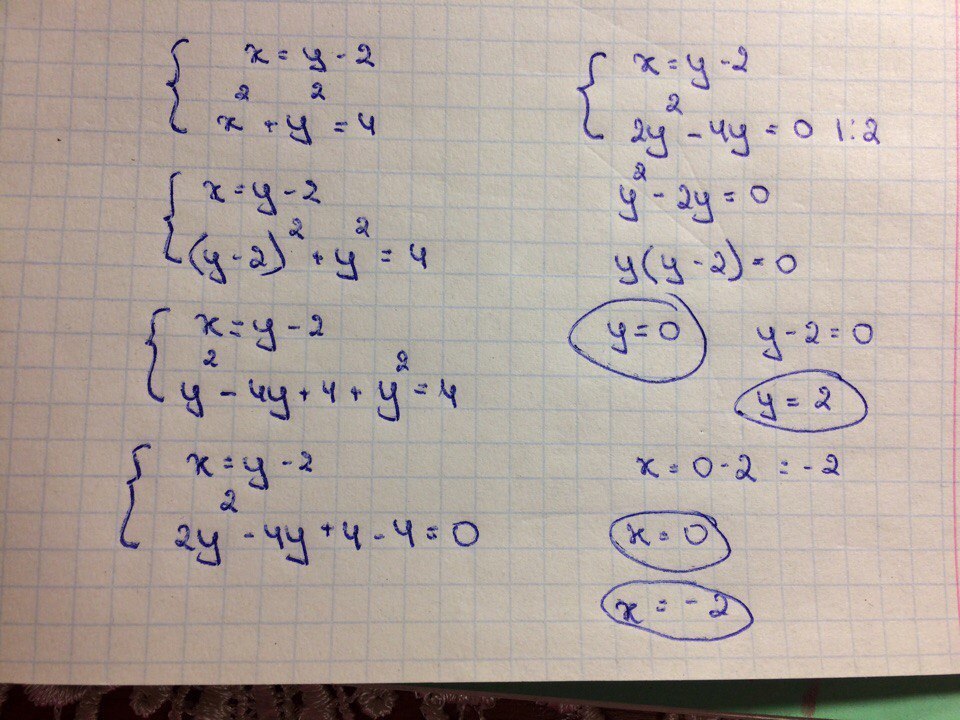 x = y - 2
x² + y² = 4
x = y - 2
(y - 2)² + y² = 4
x = y - 2
y² - 4y + 4 + y² = 4
x = y - 2
2y² - 4y + 4 - 4 = 0
x = y - 2
2y² - 4y = 0 |: 2
y² - 2y = 0
y(y - 2) = 0
y = 0 y - 2 = 0
y = 2
x = 0 - 2 = - 2
x = 0
x = - 2